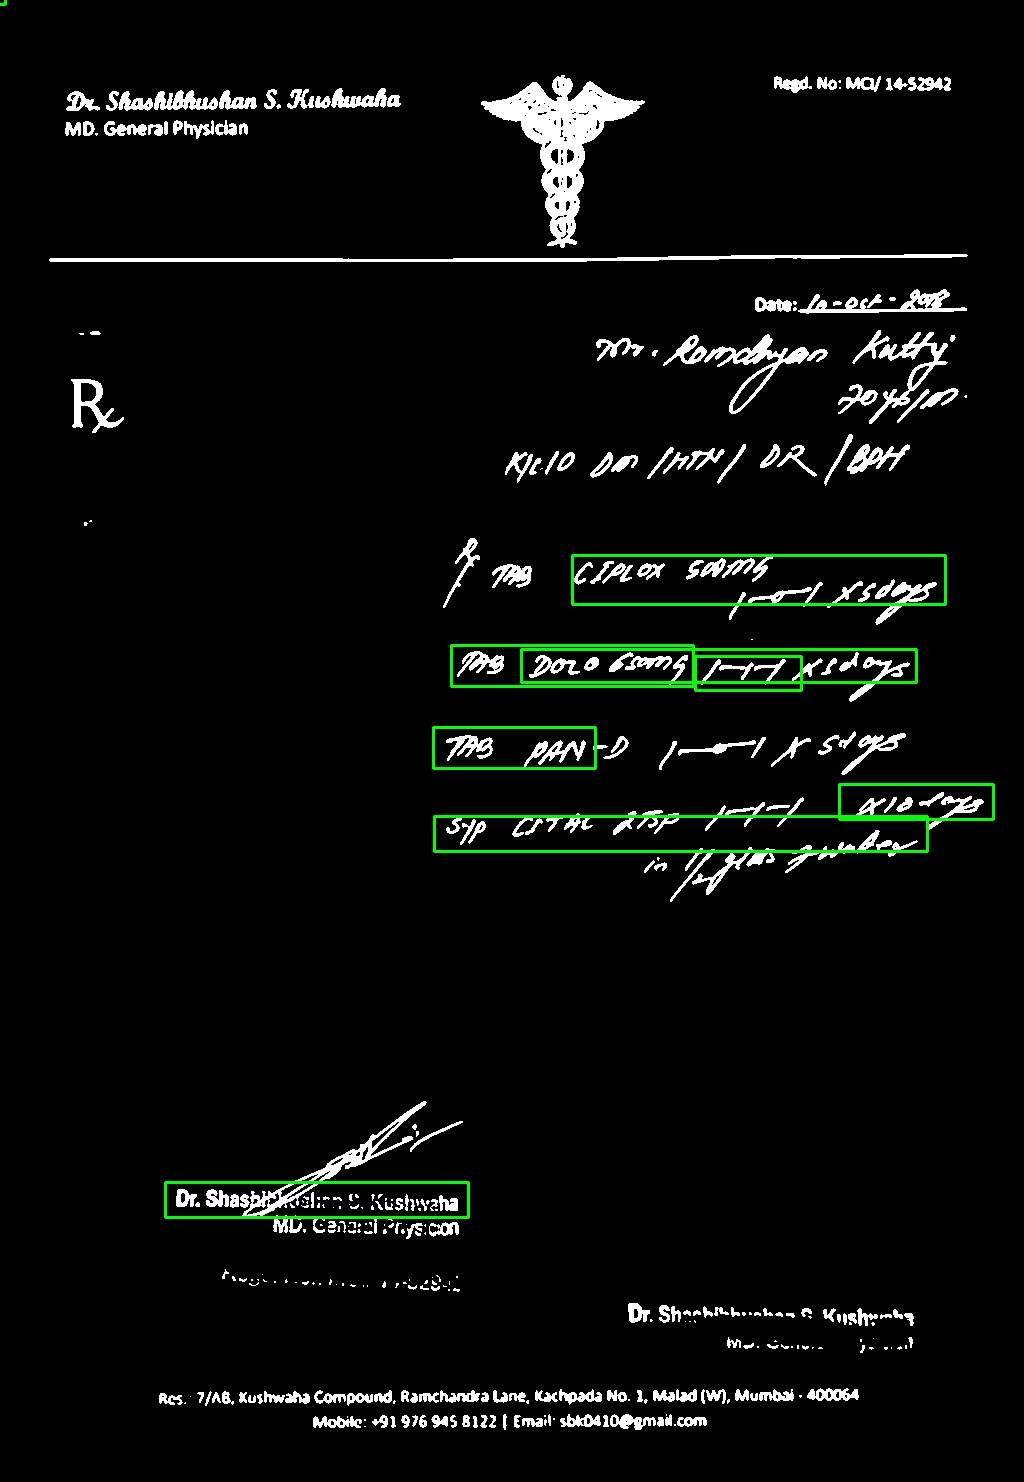 Dr. Shashibhushan S. Kushwaha
Regd. No: MCI/ 14-52942
MD. General Physician
Date: 10-Oct-2018
Mr. Ramdhyan Kutty
70 yrs/M.
K/C/O DM /HTN/ DR /BPH
Rx
Rx TAB CIPLOX 500MG
1-0-1 X 5 days
TAB DOLO 650MG 1-1-1 X 5 days
TAB PAN-D 1-0-1 X 5 days
Syp CITAL 2TSP 1-1-1 X10 days
in 1/2 glass of water
Dr. Shashibhushan S. Kushwaha
MD. General Physician
Dr. Shashibhushan S. Kushwaha
Res. : 7/AB, Kushwaha Compound, Ramchandra Lane, Kachpada No. 1, Malad (W), Mumbai - 400064
Mobile: +91 976 945 8122 | Email: sbk0410@gmail.com